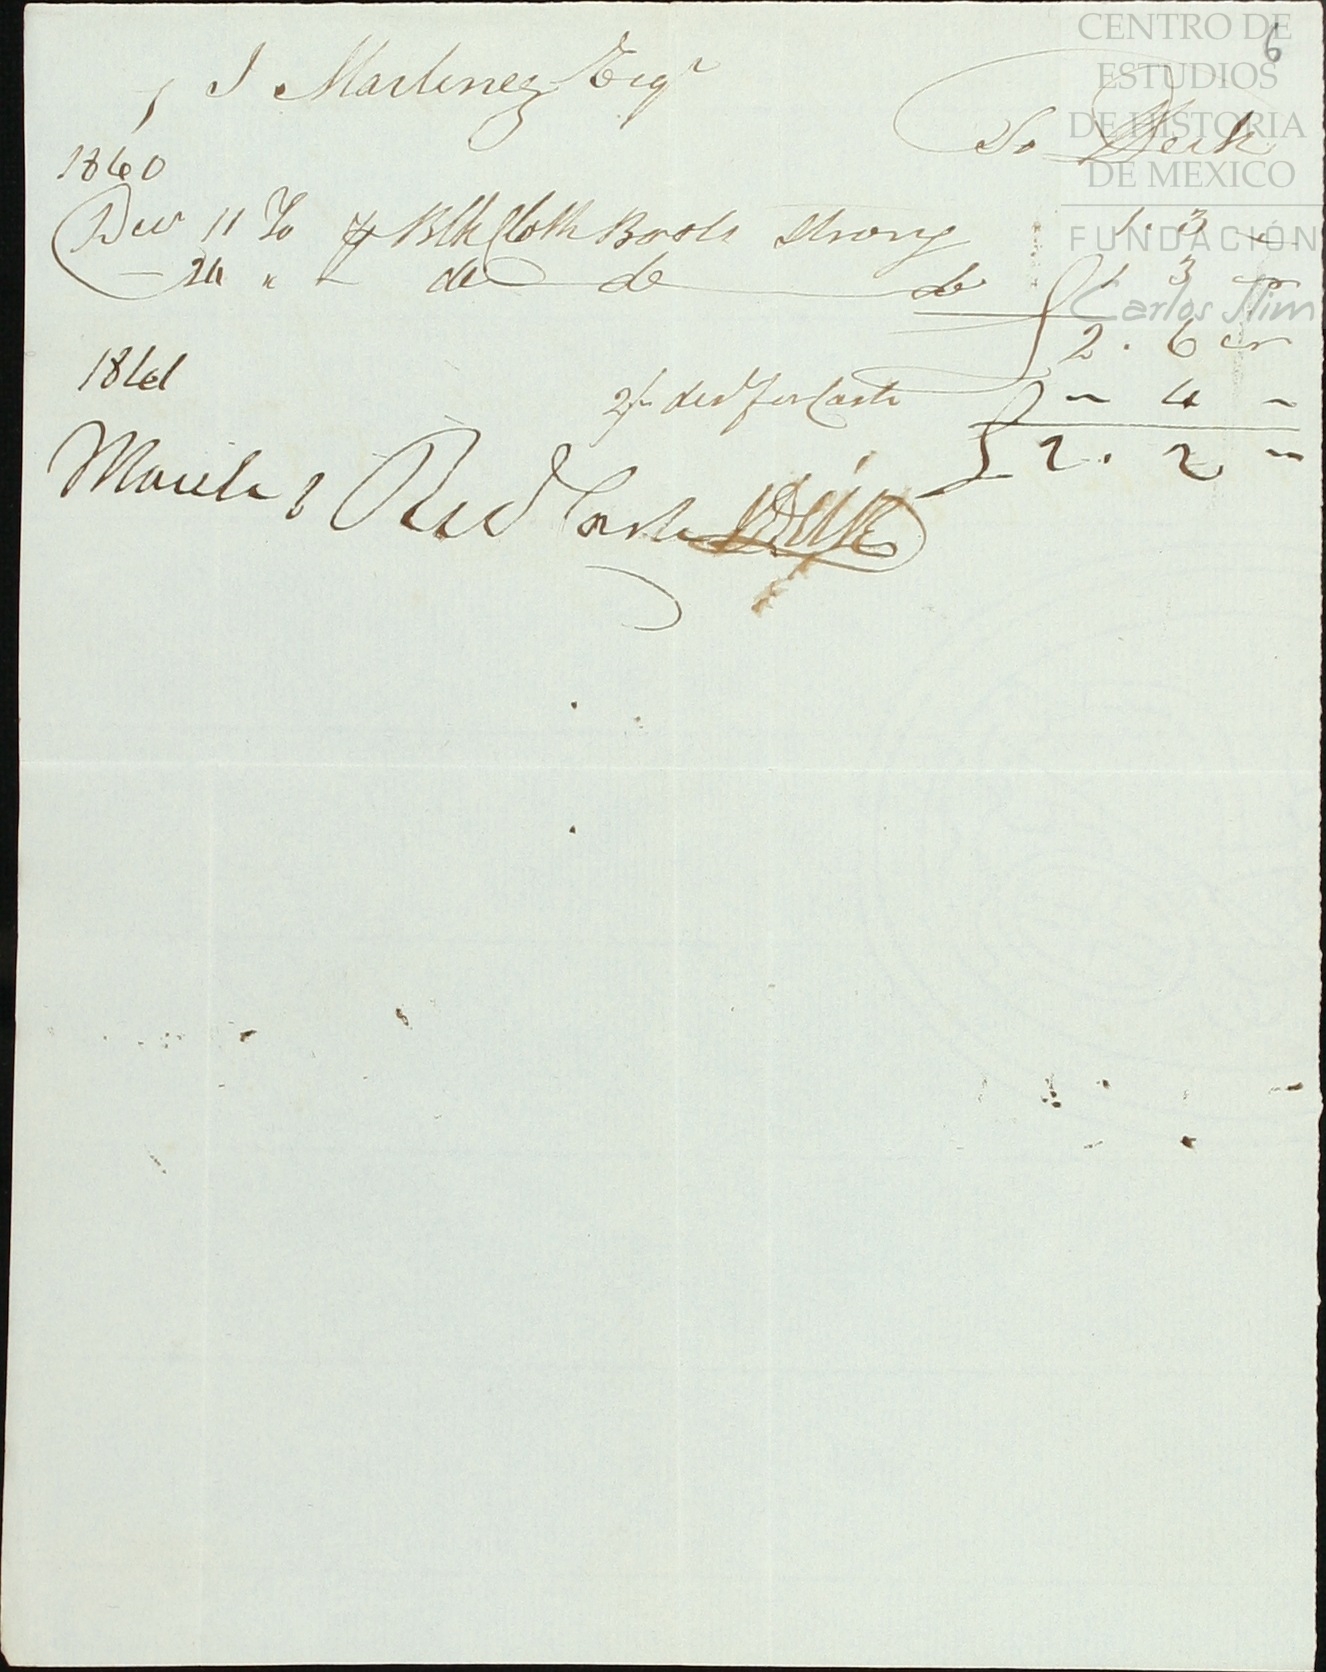 6
J Martinez Esqr
To Dick
1860
Decr 11 To pr Blk Cloth Boots strong 1. 3 -
- 24 " - do do do 1 3 -
£ 2. 6 -
1861
2/- dist for Cash - 4 -
£ 2. 2 -
March 8 Recd Cash Dick
CENTRO DE
ESTUDIOS
DE HISTORIA
DE MEXICO
FUNDACIÓN
Carlos Slim